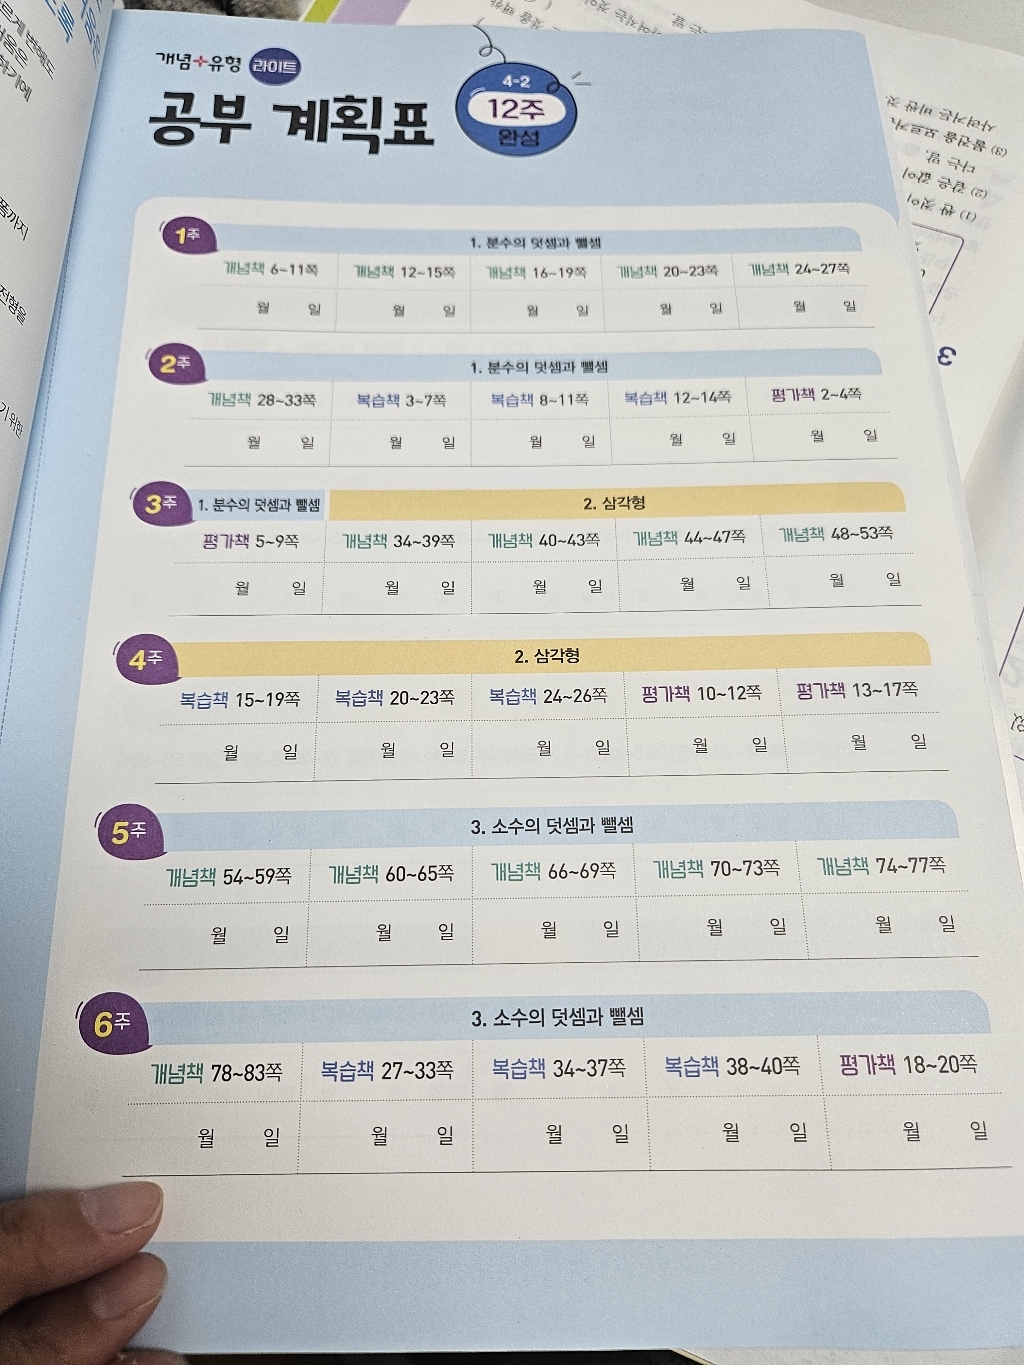 개념+유형 라이트
공부 계획표
4-2
12주
완성
1주
1. 분수의 덧셈과 뺄셈
개념책 6~11쪽 개념책 12~15쪽 개념책 16~19쪽 개념책 20~23쪽 개념책 24~27쪽
월 일 월 일 월 일 월 일 월 일
2주
1. 분수의 덧셈과 뺄셈
개념책 28~33쪽 복습책 3~7쪽 복습책 8~11쪽 복습책 12~14쪽 평가책 2~4쪽
월 일 월 일 월 일 월 일 월 일
3주
1. 분수의 덧셈과 뺄셈 2. 삼각형
평가책 5~9쪽 개념책 34~39쪽 개념책 40~43쪽 개념책 44~47쪽 개념책 48~53쪽
월 일 월 일 월 일 월 일 월 일
4주
2. 삼각형
복습책 15~19쪽 복습책 20~23쪽 복습책 24~26쪽 평가책 10~12쪽 평가책 13~17쪽
월 일 월 일 월 일 월 일 월 일
5주
3. 소수의 덧셈과 뺄셈
개념책 54~59쪽 개념책 60~65쪽 개념책 66~69쪽 개념책 70~73쪽 개념책 74~77쪽
월 일 월 일 월 일 월 일 월 일
6주
3. 소수의 덧셈과 뺄셈
개념책 78~83쪽 복습책 27~33쪽 복습책 34~37쪽 복습책 38~40쪽 평가책 18~20쪽
월 일 월 일 월 일 월 일 월 일
(1) 싼 것이
(2) 같은 값이
다는 말.
(3) 물건을 모르거든
3